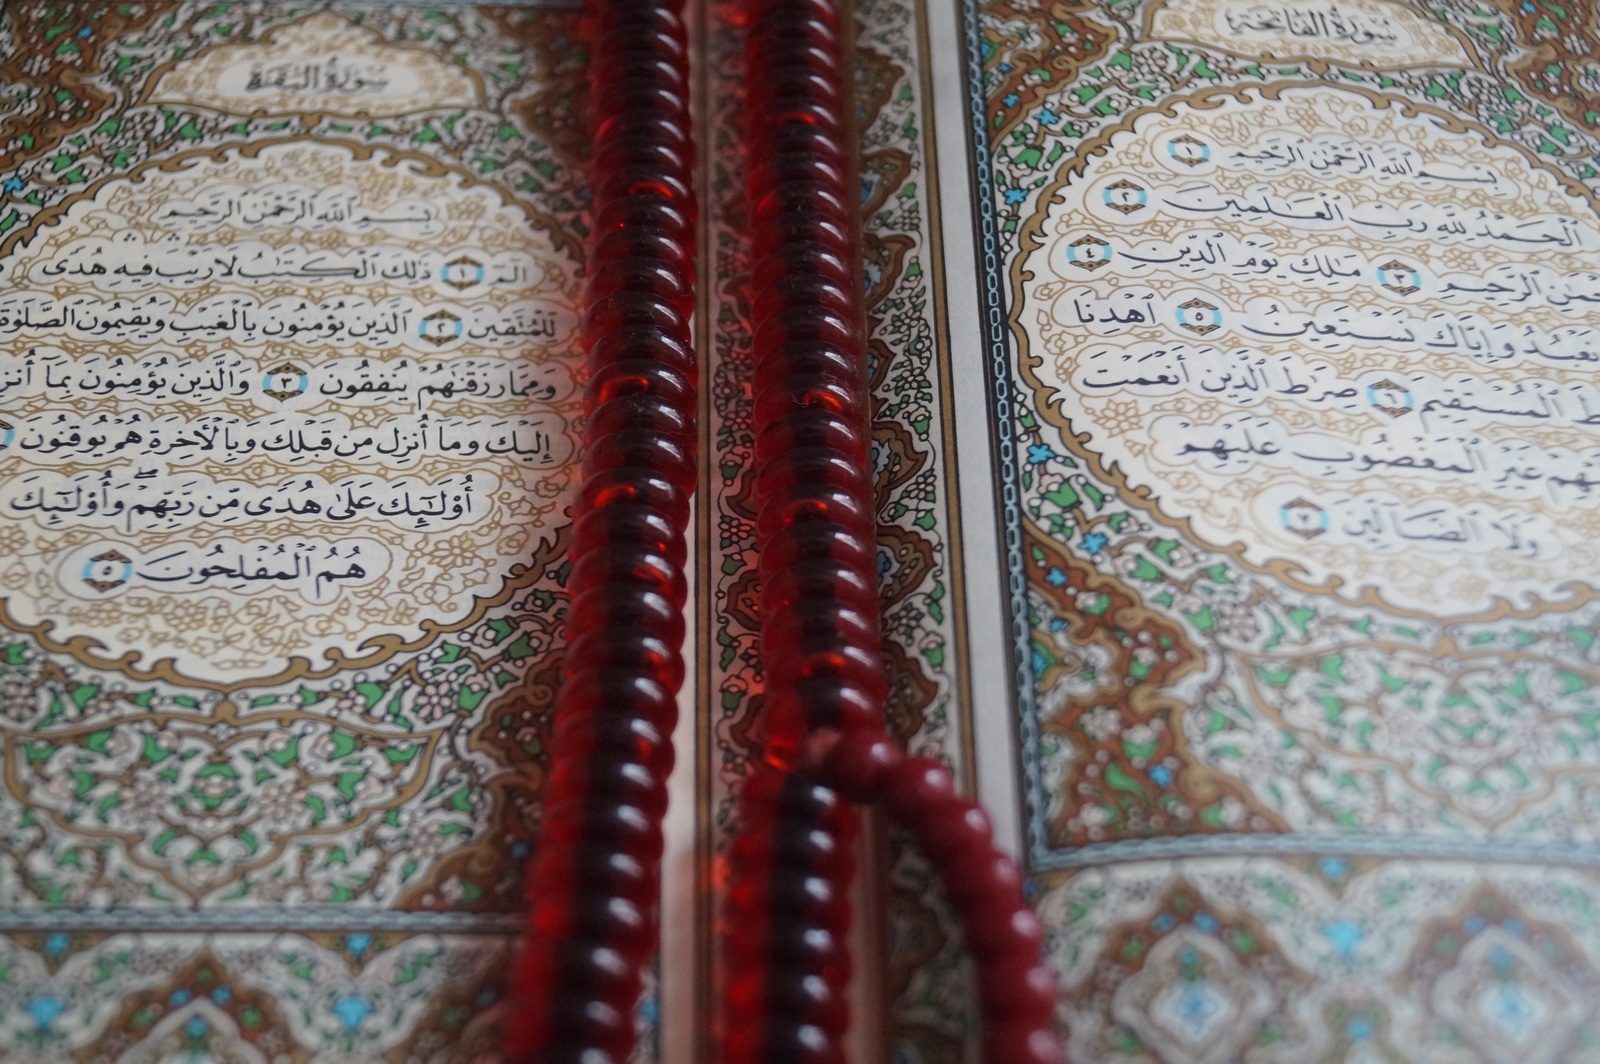 سُورَةُ الفَاتِحَةِ
بِسْمِ ٱللَّهِ ٱلرَّحْمَٰنِ ٱلرَّحِيمِ ١
ٱلْحَمْدُ لِلَّهِ رَبِّ ٱلْعَٰلَمِينَ ٢
ٱلرَّحِيمِ ٣ مَٰلِكِ يَوْمِ ٱلدِّينِ ٤
نَعْبُدُ وَإِيَّاكَ نَسْتَعِينُ ٥ ٱهْدِنَا
ٱلْمُسْتَقِيمَ ٦ صِرَٰطَ ٱلَّذِينَ أَنْعَمْتَ
غَيْرِ ٱلْمَغْضُوبِ عَلَيْهِمْ
وَلَا ٱلضَّآلِّينَ ٧
سُورَةُ البَقَرَةِ
بِسْمِ ٱللَّهِ ٱلرَّحْمَٰنِ ٱلرَّحِيمِ
الٓمٓ ١ ذَٰلِكَ ٱلْكِتَٰبُ لَا رَيْبَ فِيهِ هُدًى
لِّلْمُتَّقِينَ ٢ ٱلَّذِينَ يُؤْمِنُونَ بِٱلْغَيْبِ وَيُقِيمُونَ ٱلصَّلَوٰةَ
وَمِمَّا رَزَقْنَٰهُمْ يُنفِقُونَ ٣ وَٱلَّذِينَ يُؤْمِنُونَ بِمَآ
إِلَيْكَ وَمَآ أُنزِلَ مِن قَبْلِكَ وَبِٱلْءَاخِرَةِ هُمْ يُوقِنُونَ
أُو۟لَٰٓئِكَ عَلَىٰ هُدًى مِّن رَّبِّهِمْ ۖ وَأُو۟لَٰٓئِكَ
هُمُ ٱلْمُفْلِحُونَ ٥